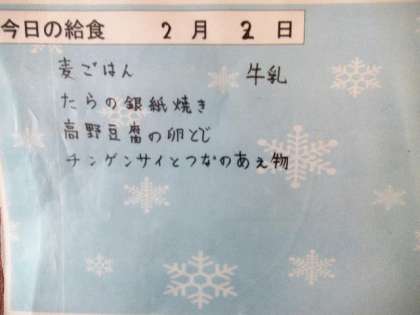 今日の給食 2月2日
麦ごはん 牛乳
たらの銀紙焼き
高野豆腐の卵とじ
チンゲンサイとつなのあえ物